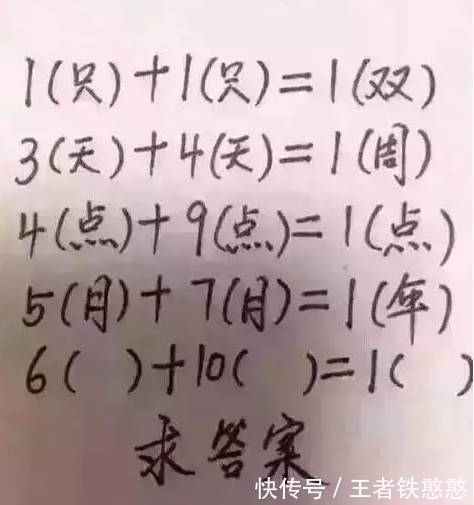 1(只)+1(只)=1(双)
3(天)+4(天)=1(周)
4(点)+9(点)=1(点)
5(月)+7(月)=1(年)
6( )+10( )=1( )
求答案
快传号/王者铁憨憨